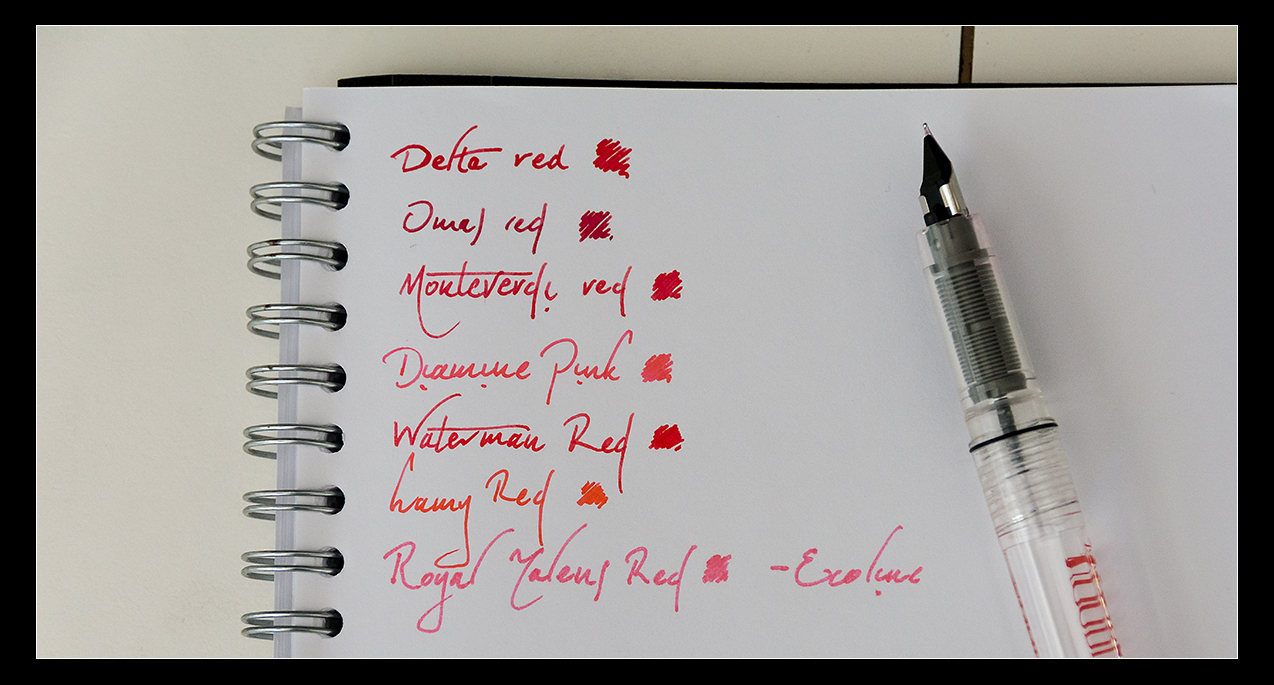 Delta red
Omas red
Monteverdi red
Diamine Pink
Waterman Red
Lamy Red
Royal Talens Red - Ecoline